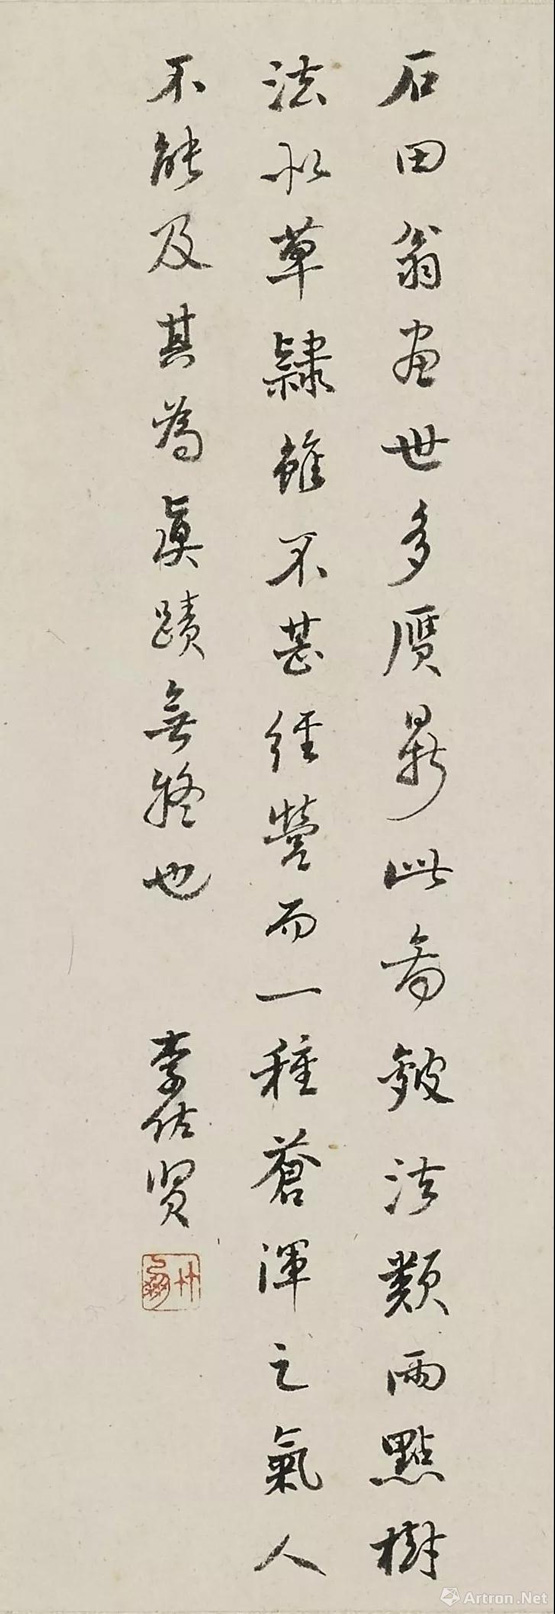 石田翁画世多贋鼎此圖皴法類雨點樹
法似草隸雖不甚经營而一種蒼渾之氣人
不能及其為真蹟無疑也
李佐贤
Artron.Net